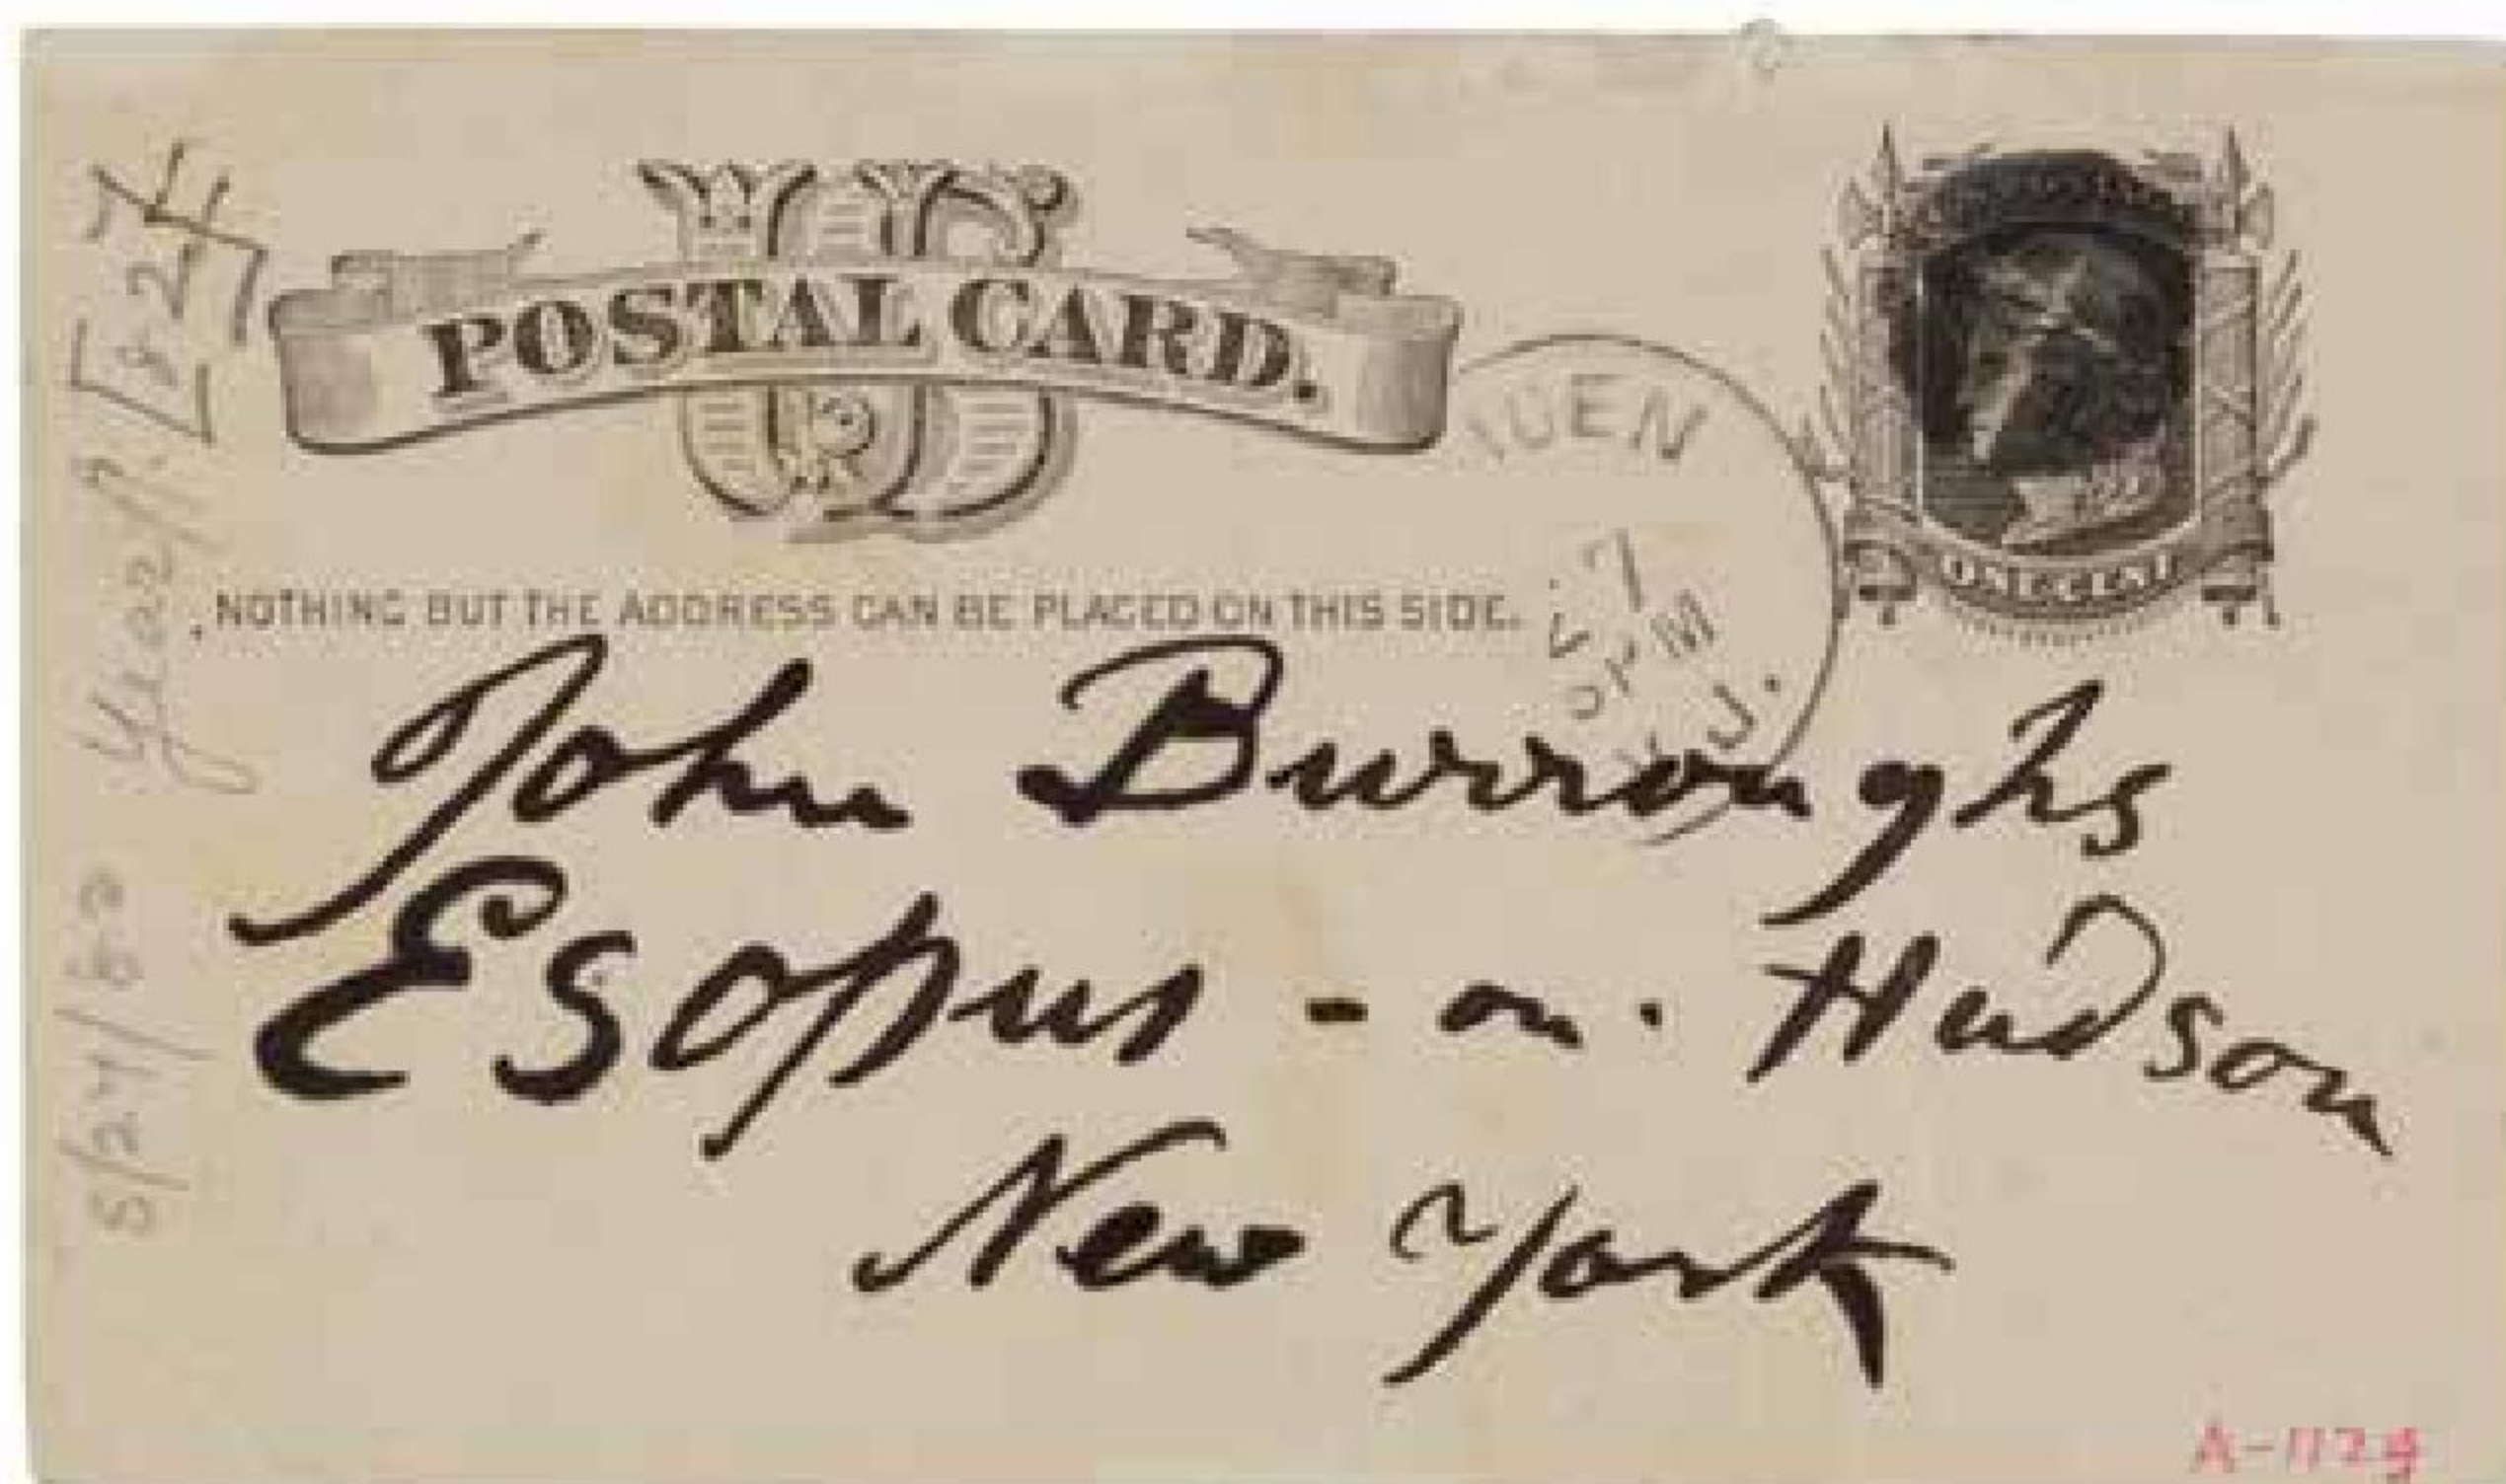 US
POSTAL CARD.
NOTHING BUT THE ADDRESS CAN BE PLACED ON THIS SIDE.
ONE CENT
7
PM
J.
John Burroughs
Esopus - on - Hudson
New York
Year
A-1129